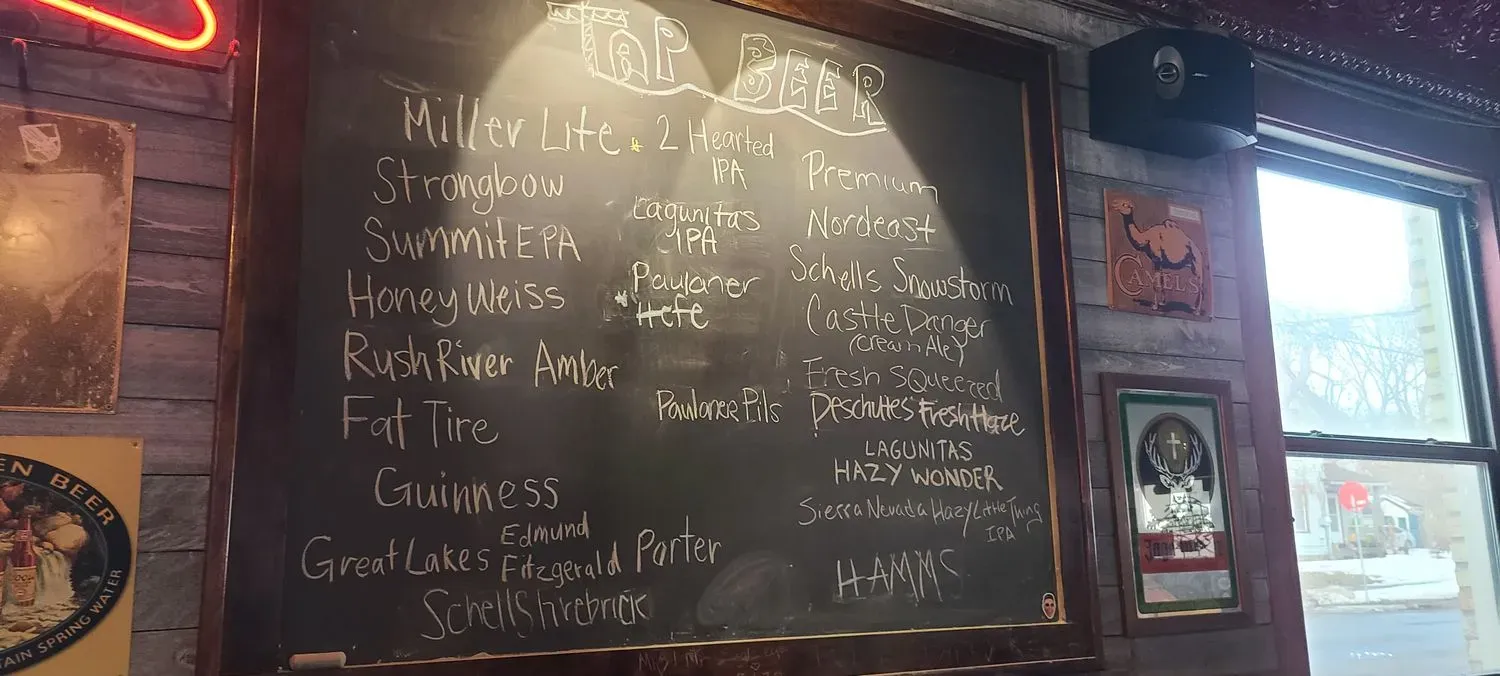 TaP BEER
Miller Lite
Strongbow
Summit EPA
Honey Weiss
Rush River Amber
Fat Tire
Guinness
Great Lakes Edmund Fitzgerald Porter
Schells firebrick
2 Hearted
IPA
Lagunitas
IPA
Paulaner
Hefe
Paulaner Pils
Premium
Nordeast
Schells Snowstorm
Castle Danger
(Cream Ale)
Fresh SQueezed
Deschutes Fresh Haze
LAGUNITAS
HAZY WONDER
Sierra Nevada Hazy Little Thing
IPA
HAMMS
CAMELS
EN BEER
TAIN SPRING WATER